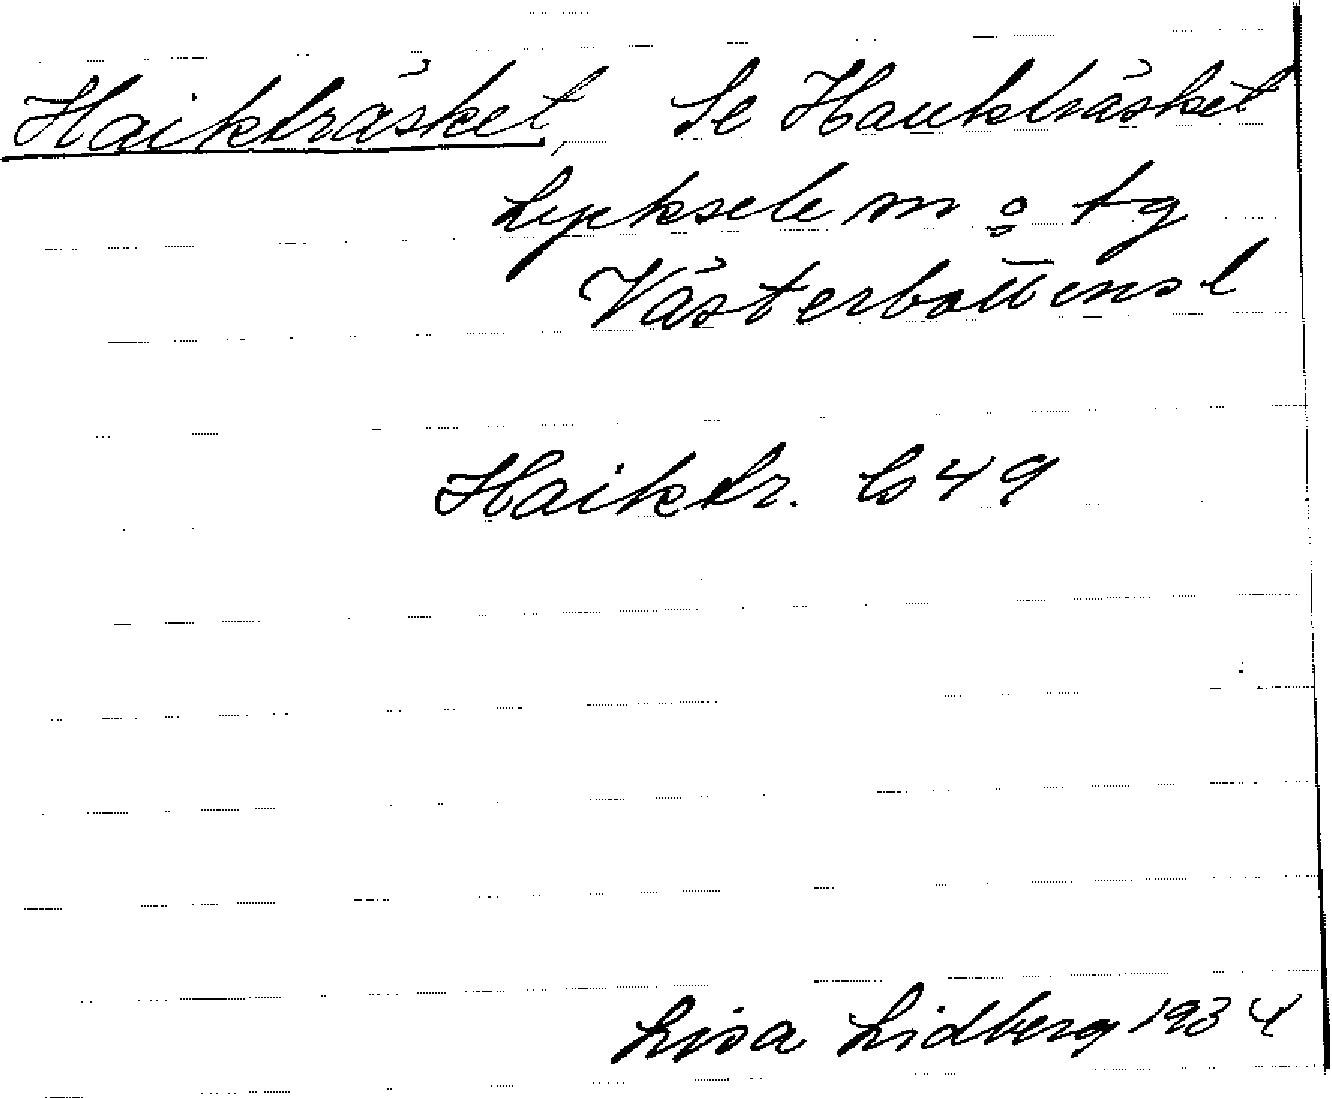 Haikträsket, Se Hauktråsket
Lycksele m o tg
Västerbottens l
Haiktr. Eo 49
Lisa Lidberg 1934